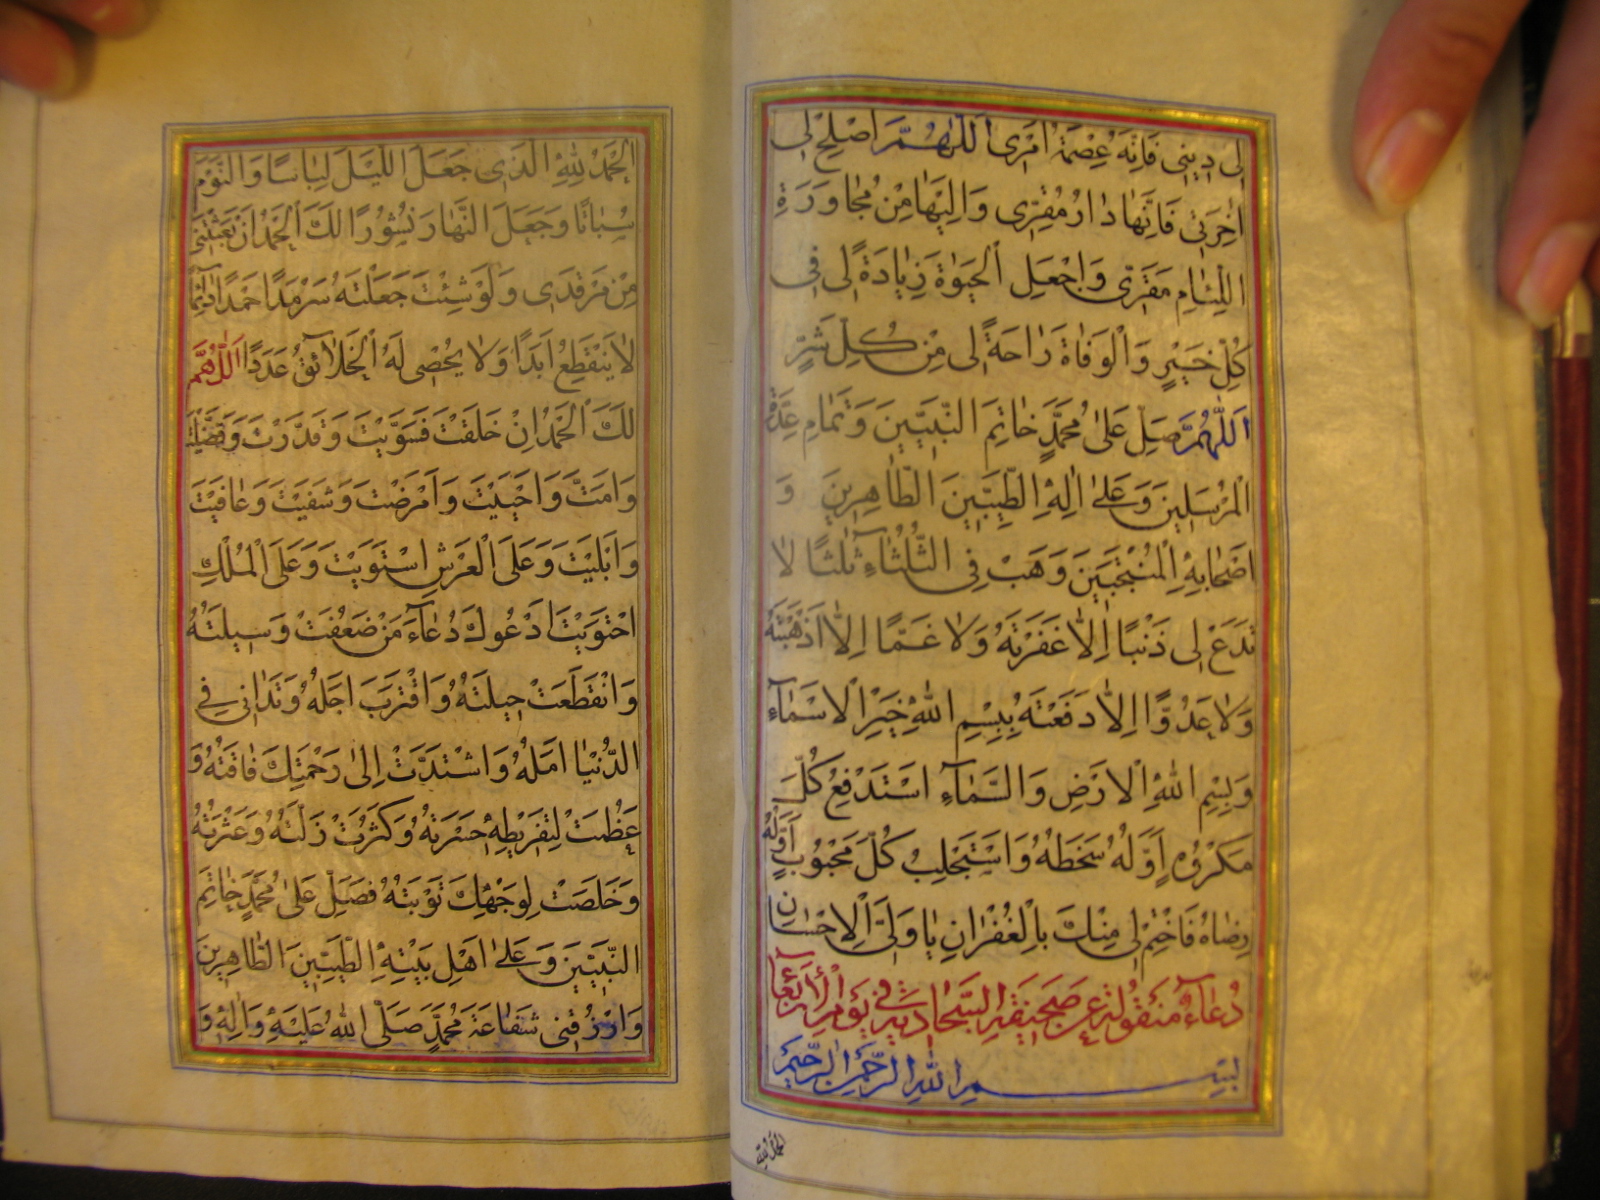 لِی دِینِی فَاِنَّهُ عِصْمَةُ اَمْرِی اَللّٰهُمَّ اَصْلِحْ لِی
اٰخِرَتِی فَاِنَّهٰا دٰارُ مَقَرِّی وَاِلَیْهٰا مِنْ مُجٰاوَرَةِ
اللِّئٰامِ مَفَرِّی وَاجْعَلِ الْحَیٰوةَ زِیٰادَةً لِی فِی
كُلِّ خَیْرٍ وَالْوَفٰاةَ رٰاحَةً لِی مِنْ كُلِّ شَرٍّ
اَللّٰهُمَّ صَلِّ عَلٰی مُحَمَّدٍ خٰاتِمِ النَّبِیّٖینَ وَتَمٰامِ عِدَّةِ
الْمُرْسَلِینَ وَعَلٰی اٰلِهِ الطَّیِّبِینَ الطّٰاهِرِینَ وَ
اَصْحٰابِهِ الْمُنْتَجَبِینَ وَهَبْ فِی الثَّلٰثٰاءِ ثَلٰثًا لٰا
تَدَعْ لِی ذَنْبًا اِلّٰا غَفَرْتَهُ وَلٰا غَمًّا اِلّٰا اَذْهَبْتَهُ
وَلٰا عَدُوًّا اِلّٰا دَفَعْتَهُ بِبِسْمِ اللّٰهِ خَیْرِ الْاَسْمٰاۤءِ
وَبِسْمِ اللّٰهِ الْاَرْضِ وَالسَّمٰاۤءِ اَسْتَدْفِعُ كُلَّ
مَكْرُوهٍ اَوَّلُهُ سَخَطُهُ وَاَسْتَجْلِبُ كُلَّ مَحْبُوبٍ اَوَّلُهُ
رِضٰاهُ فَاخْتِمْ لِی مِنْكَ بِالْغُفْرٰانِ یٰا وَلِیَّ الْاِحْسٰانِ
دُعٰاۤءٌ مَنْقُولَةٌ عَنْ صَحِیفَةِ السَّجّٰادِیَّةِ فِی یَوْمِ الْاَرْبَعٰاۤءِ
بِسْمِ اللّٰهِ الرَّحْمٰنِ الرَّحِیمِ
الحمد لله
اَلْحَمْدُ لِلّٰهِ الَّذِی جَعَلَ اللَّیْلَ لِبٰاسًا وَالنَّوْمَ
سُبٰاتًا وَجَعَلَ النَّهٰارَ نُشُورًا لَكَ الْحَمْدُ اَنْ بَعَثْتَنِی
مِنْ مَرْقَدِی وَلَوْ شِئْتَ جَعَلْتَهُ سَرْمَدًا حَمْدًا دٰائِمًا
لٰا یَنْقَطِعُ اَبَدًا وَلٰا یُحْصِی لَهُ الْخَلٰاۤئِقُ عَدَدًا اَللّٰهُمَّ
لَكَ الْحَمْدُ اِنْ خَلَقْتَ فَسَوَّیْتَ وَقَدَّرْتَ وَقَضَیْتَ
وَاَمَتَّ وَاَحْیَیْتَ وَاَمْرَضْتَ وَشَفَیْتَ وَعٰافَیْتَ
وَاَبْلَیْتَ وَعَلَی الْعَرْشِ اسْتَوَیْتَ وَعَلَی الْمُلْكِ
احْتَوَیْتَ اَدْعُوكَ دُعٰاۤءَ مَنْ ضَعُفَتْ وَسِیلَتُهُ
وَانْقَطَعَتْ حِیلَتُهُ وَاقْتَرَبَ اَجَلُهُ وَتَدٰانٰی فِی
الدُّنْیٰا اَمَلُهُ وَاشْتَدَّتْ اِلٰی رَحْمَتِكَ فٰاقَتُهُ وَ
عَظُمَتْ لِتَفْرِیطِهِ حَسْرَتُهُ وَكَثُرَتْ زَلَّتُهُ وَعَثْرَتُهُ
وَخَلَصَتْ لِوَجْهِكَ تَوْبَتُهُ فَصَلِّ عَلٰی مُحَمَّدٍ خٰاتِمِ
النَّبِیِّینَ وَعَلٰی اَهْلِ بَیْتِهِ الطَّیِّبِینَ الطّٰاهِرِینَ
وَارْزُقْنِی شَفٰاعَةَ مُحَمَّدٍ صَلَّی اللّٰهُ عَلَیْهِ وَاٰلِهِ وَ